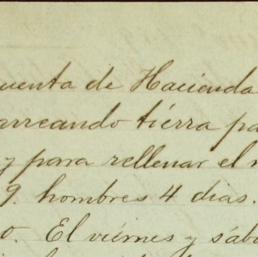 cuenta de Hacienda
arreando tierra pa
y para rellenar el
9. hombres 4 dias.
o. El viernes y sába